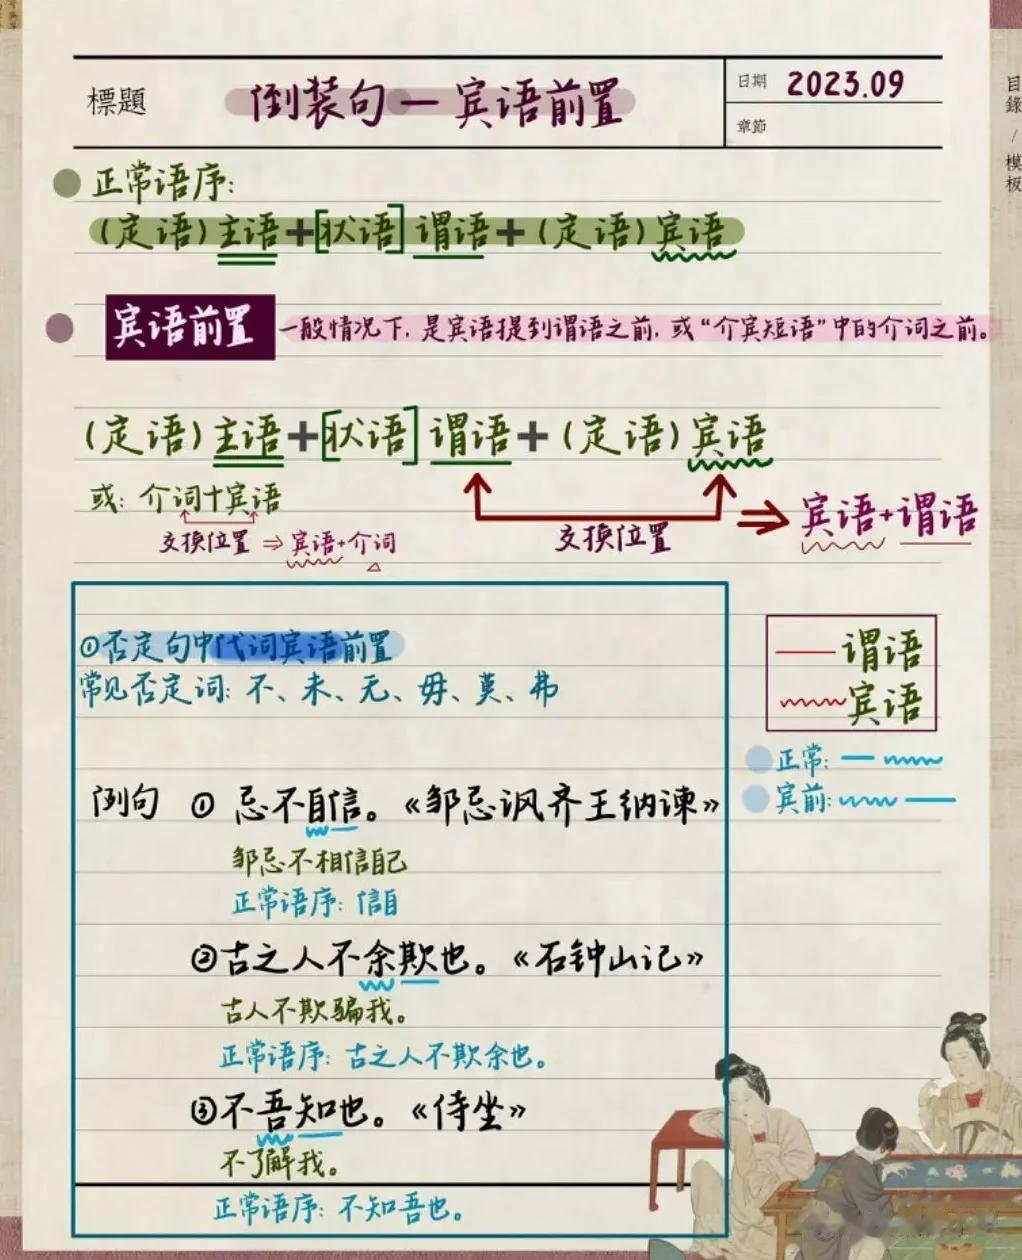 標題 倒装句—宾语前置 日期 2023.09
章節
目錄/模板
正常语序:
(定语)主语+[状语]谓语+(定语)宾语
宾语前置 一般情况下,是宾语提到谓语之前,或“介宾短语”中的介词之前。
(定语)主语+[状语]谓语+(定语)宾语
或:介词+宾语
交换位置⇒宾语+介词
交换位置 ⇒宾语+谓语
①否定句中代词宾语前置
常见否定词:不、未、无、毋、莫、弗
谓语
宾语
正常:
宾前:
例句 ① 忌不自信。《邹忌讽齐王纳谏》
邹忌不相信自己
正常语序:信自
②古之人不余欺也。《石钟山记》
古人不欺骗我。
正常语序:古之人不欺余也。
③不吾知也。《侍坐》
不了解我。
正常语序:不知吾也。